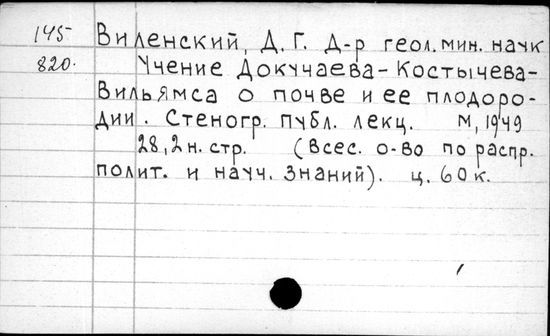 145 Виленский, Д. Г. Д-р геол. мин. наук
820. Учение Докучаева-Костычева-
Вильямса о почве и ее плодоро-
дии. Стеногр. публ. лекц. М, 1949
28, 2 н. стр. (Всес. о-во по распр.
полит. и науч. знаний). ц. 60 к.